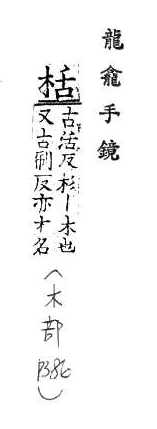 龍龕手鏡
栝
古活反杉丨木也
又古刑反亦木名
(木部
P.86)